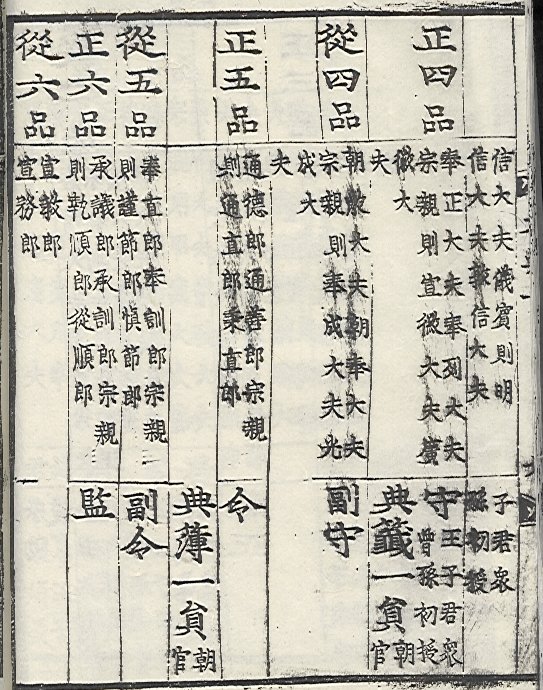 信大夫儀賓則明
信大夫敦信大夫
子君衆
孫初授
正四品
奉正大夫奉列大夫
宗親則宣徽大夫廣
徽大
夫
守
王子君衆
曾孫初授
典籤一貟
朝
官
從四品
朝散大夫朝奉大夫
宗親則奉成大夫光
成大
夫
副守
正五品
通德郎通善郎宗親
則通直郎秉直郎
令
典薄一貟
朝
官
從五品
奉直郎奉訓郎宗親
則謹節郎愼節郎
副令
正六品
承議郎承訓郎宗親
則執順郎從順郎
監
從六品
宣敎郎
宣務郎